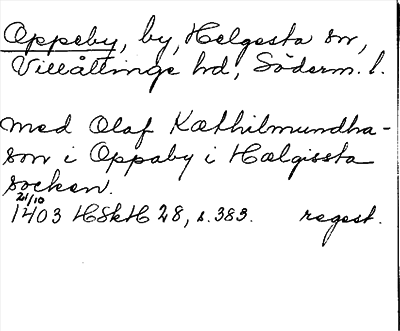 Oppeby, by, Helgesta sn,
Villåttinge hd, Söderm. l.
med Olaf Kæthilmundha-
son i Oppaby i Hælgissta
socken.
21/10
1403 HSkH 28, s. 383. regest.